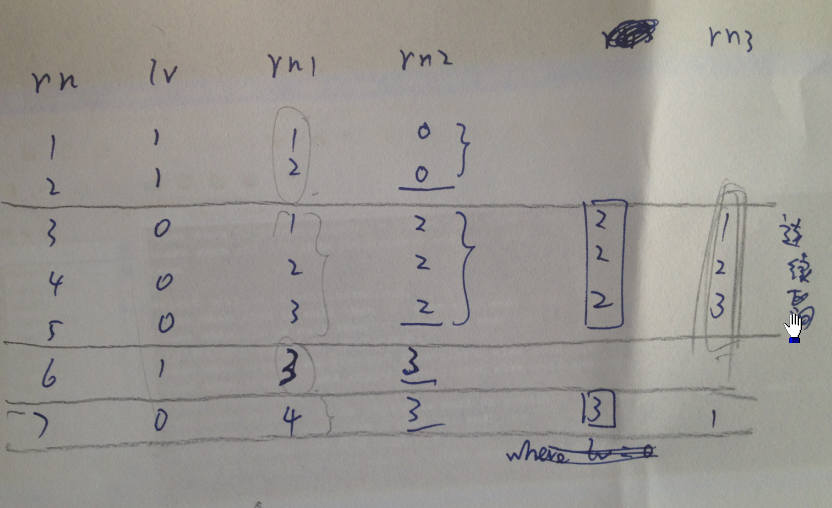 rn lv rn1 rn2 rn3
1 1 1 0
2 1 2 0
3 0 1 2 2 1 连
4 0 2 2 2 2 续
5 0 3 2 2 3
6 1 3 3
7 0 4 3 3 1
where lv = 0